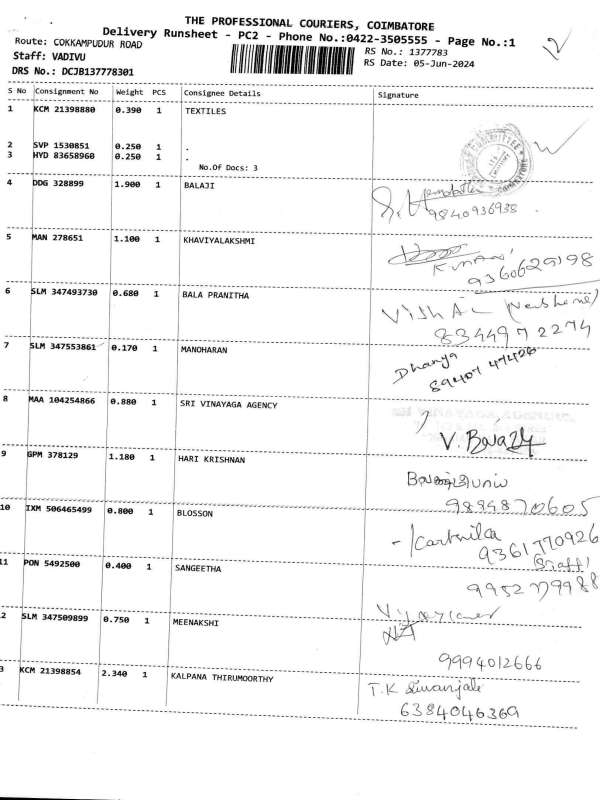 THE PROFESSIONAL COURIERS, COIMBATORE
Delivery Runsheet - PC2 - Phone No.:0422-3505555 - Page No.:1
Route: COKKAMPUDUR ROAD
RS No.: 1377783
Staff: VADIVU
RS Date: 05-Jun-2024
DRS No.: DCJB137778301
S No Consignment No Weight PCS Consignee Details Signature
1 KCM 21398880 0.390 1 TEXTILES
2 SVP 1530851 0.250 1 .
3 HYD 83658960 0.250 1 .
No.Of Docs: 3
4 DDG 328899 1.900 1 BALAJI
9840936938
5 MAN 278651 1.100 1 KHAVIYALAKSHMI
9360629198
6 SLM 347493730 0.680 1 BALA PRANITHA
8344972274
7 SLM 347553861 0.170 1 MANOHARAN
Dhanya
89407 47426
8 MAA 104254866 0.880 1 SRI VINAYAGA AGENCY
9 GPM 378129 1.180 1 HARI KRISHNAN
9894870605
10 IXM 506465499 0.800 1 BLOSSON
9361770926
(Staff)
11 PON 5492500 0.400 1 SANGEETHA
9952779988
2 SLM 347509899 0.750 1 MEENAKSHI
9994012666
3 KCM 21398854 2.340 1 KALPANA THIRUMOORTHY
T.K Sivanjale
6384046369